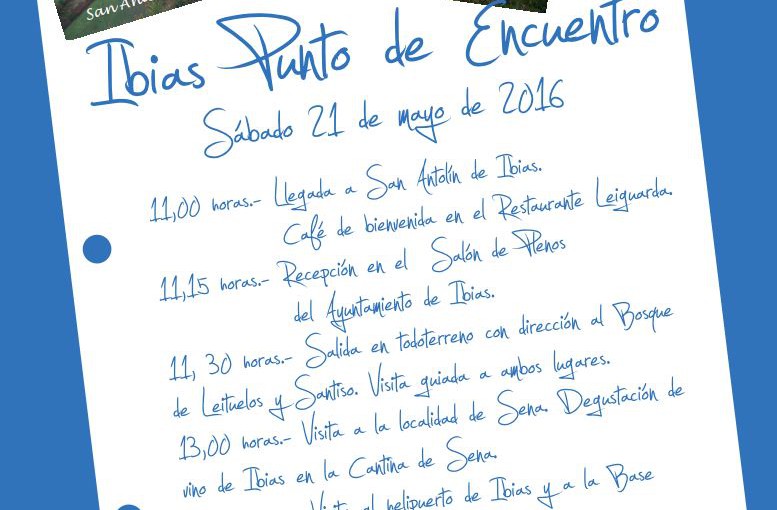 San An
Ibias Punto de Encuentro
Sábado 21 de mayo de 2016
11,00 horas.- Llegada a San Antolín de Ibias.
Café de bienvenida en el Restaurante Leiguarda.
11,15 horas.- Recepción en el Salón de Plenos
del Ayuntamiento de Ibias.
11, 30 horas.- Salida en todoterreno con dirección al Bosque
de Leituelos y Santiso. Visita guiada a ambos lugares.
13,00 horas.- Visita a la localidad de Sena. Degustación de
vino de Ibias en la Cantina de Sena.
Visita al helipuerto de Ibias y a la Base